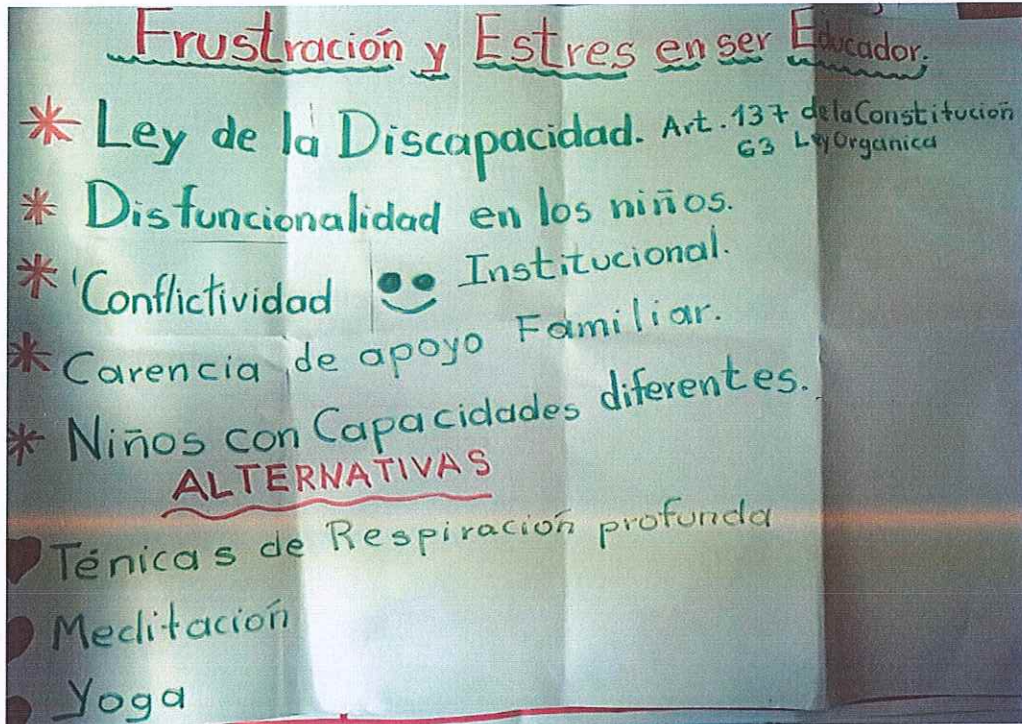 Frustración y Estres en ser Educador.
* Ley de la Discapacidad. Art. 137 de la Constitución
63 Ley Organica
* Disfuncionalidad en los niños.
* Conflictividad Institucional.
* Carencia de apoyo Familiar.
* Niños con Capacidades diferentes.
ALTERNATIVAS
Ténicas de Respiración profunda
Meditación
Yoga